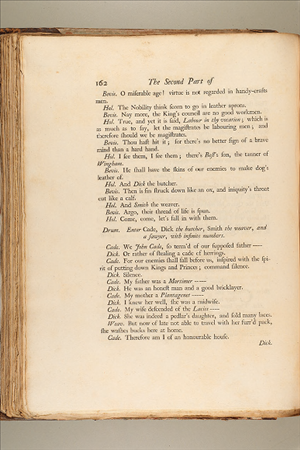 162 The Second Part of
Bevis. O miserable age! virtue is not regarded in handy-crafts
men.
Hol. The Nobility think scorn to go in leather aprons.
Bevis. Nay more, the King's council are no good workmen.
Hol. True, and yet it is said, Labour in thy vocation; which is
as much as to say, let the magistrates be labouring men; and
therefore should we be magistrates.
Bevis. Thou hast hit it; for there's no better sign of a brave
mind than a hard hand.
Hol. I see them, I see them; there's Best's son, the tanner of
Wingham.
Bevis. He shall have the skins of our enemies to make dog's
leather of.
Hol. And Dick the butcher.
Bevis. Then is sin struck down like an ox, and iniquity's throat
cut like a calf.
Hol. And Smith the weaver.
Bevis. Argo, their thread of life is spun.
Hol. Come, come, let's fall in with them.
Drum. Enter Cade, Dick the butcher, Smith the weaver, and
a sawyer, with infinite numbers.
Cade. We John Cade, so term'd of our supposed father —
Dick. Or rather of stealing a cade of herrings.
Cade. For our enemies shall fall before us, inspired with the spi-
rit of putting down Kings and Princes; command silence.
Dick. Silence.
Cade. My father was a Mortimer -----
Dick. He was an honest man and a good bricklayer.
Cade. My mother a Plantagenet -----
Dick. I knew her well, she was a midwife.
Cade. My wife descended of the Lacies ----
Dick. She was indeed a pedlar's daughter, and sold many laces.
Weav. But now of late not able to travel with her furr'd pack,
she washes bucks here at home.
Cade. Therefore am I of an honourable house.
Dick.